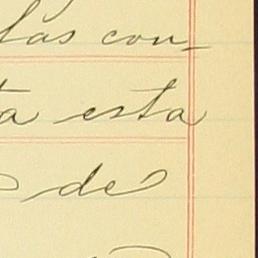 las con-
ta esta
de